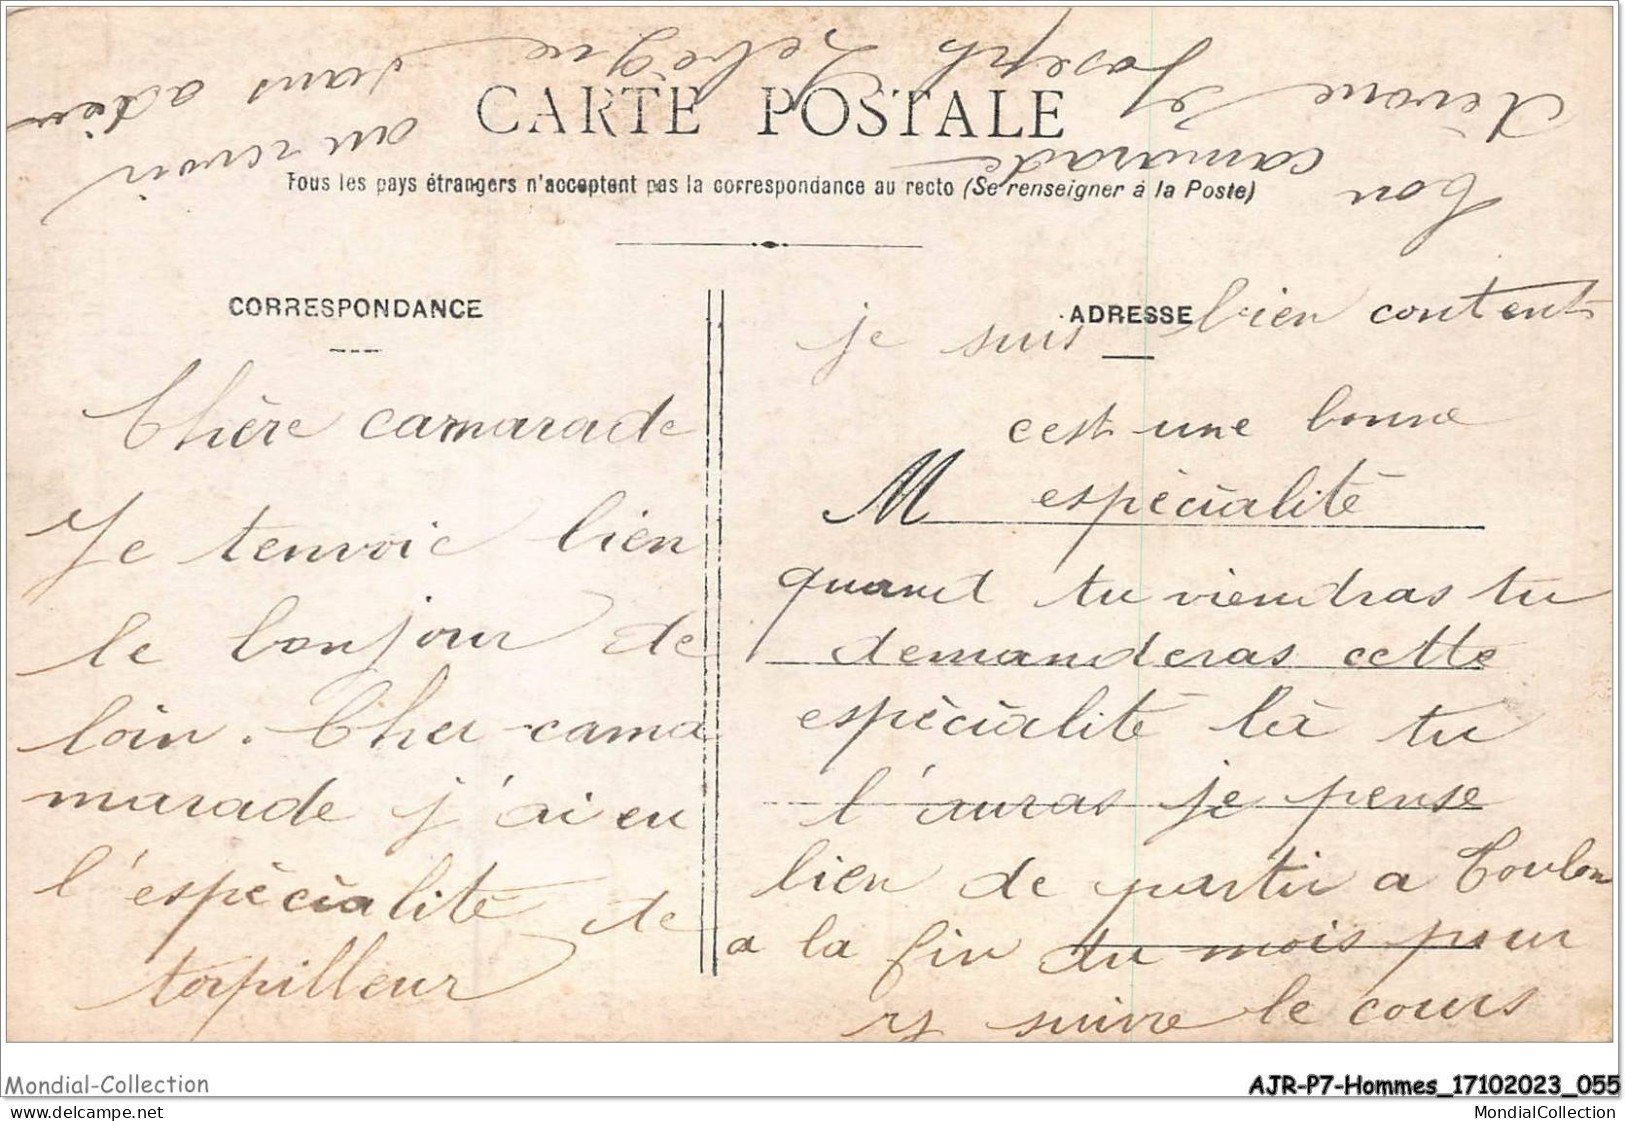 CARTE POSTALE
Tous les pays étrangers n'acceptent pas la correspondance au recto (Se renseigner à la Poste)
CORRESPONDANCE
Chère camarade
Je tenvoie bien
le bonjour de
loin. Cher cama
marade j'ai eu
l'espècialité de
torpilleur
ADRESSE
je suis bien content
cest une bonne
M espècialité
quand tu viendras tu
demanderas cette
espècialité là tu
l'auras je pense
bien de partir a Toulon
a la fin du mois pour
y suivre le cours
bon
camarade
au revoir
dévoué et
Joseph Lebègue
sans adieu
Mondial-Collection
AJR-P7-Hommes_17102023_055
www.delcampe.net
MondialCollection